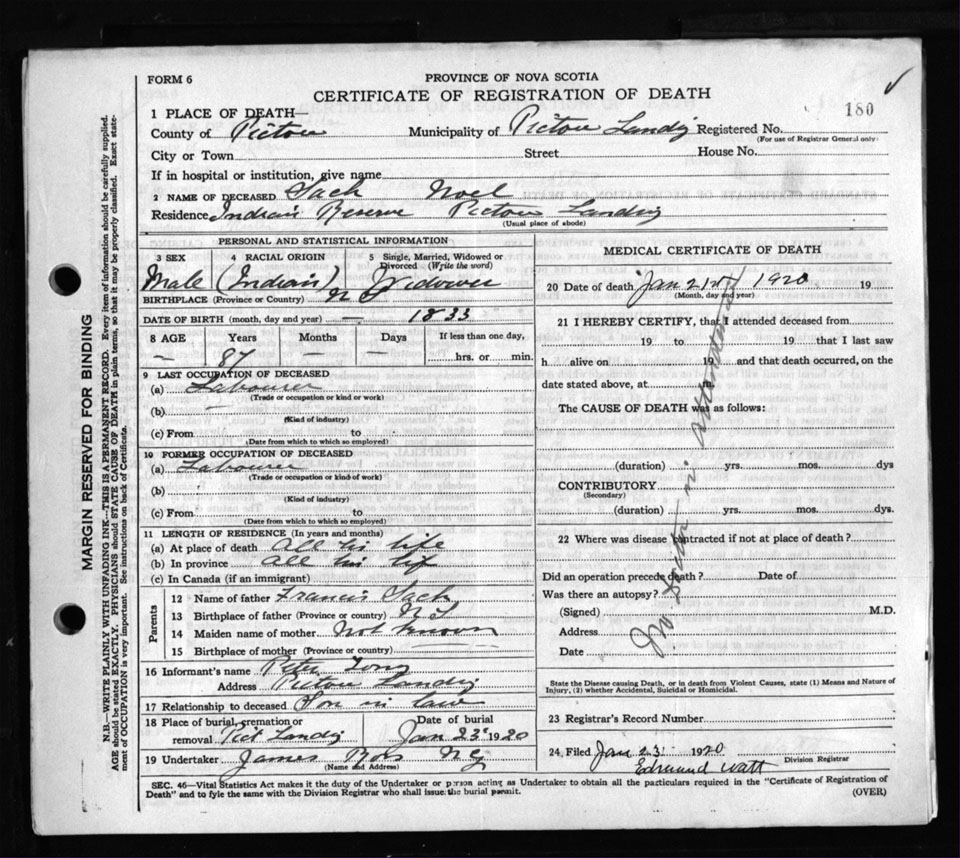 FORM 6
PROVINCE OF NOVA SCOTIA
CERTIFICATE OF REGISTRATION OF DEATH
180
1 PLACE OF DEATH—
County of Pictou Municipality of Pictou Landing Registered No.
(For use of Registrar General only)
City or Town Street House No.
If in hospital or institution, give name
2 NAME OF DECEASED Sack Noel
Residence Indian Reserve Pictou Landing
(Usual place of abode)
PERSONAL AND STATISTICAL INFORMATION
3 SEX 4 RACIAL ORIGIN 5 Single, Married, Widowed or Divorced (Write the word)
Male (Indian) Widower
BIRTHPLACE (Province or Country) N S
DATE OF BIRTH (month, day and year) — 1833
8 AGE Years Months Days If less than one day,
— 87 — — hrs. or min.
9 LAST OCCUPATION OF DECEASED
(a) Labourer
(Trade or occupation or kind or work)
(b) —
(Kind of industry)
(c) From to
(Date from which to which so employed)
10 FORMER OCCUPATION OF DECEASED
(a) Labourer
(Trade or occupation or kind of work)
(b)
(Kind of industry)
(c) From to
(Date from which to which so employed)
11 LENGTH OF RESIDENCE (In years and months)
(a) At place of death all his life
(b) In province all his life
(c) In Canada (if an immigrant)
Parents
12 Name of father Francis Sack
13 Birthplace of father (Province or country) N S
14 Maiden name of mother Not known
15 Birthplace of mother (Province or country)
16 Informant's name Peter
Address Pictou Landing
17 Relationship to deceased Son in law
18 Place of burial, cremation or removal Pict Landing
Date of burial Jan 23 1920
19 Undertaker James N G
(Name and Address)
MEDICAL CERTIFICATE OF DEATH
20 Date of death Jan 21st 1920 19
(Month, day and year)
21 I HEREBY CERTIFY, that I attended deceased from
19 to 19 that I last saw
h alive on 19 and that death occurred, on the
date stated above, at
The CAUSE OF DEATH was as follows:
(duration) yrs. mos. dys
CONTRIBUTORY
(Secondary)
(duration) yrs. mos. dys.
22 Where was disease contracted if not at place of death?
Did an operation precede death? Date of
Was there an autopsy?
(Signed) M.D.
Address
Date
No Doctor in attendance
State the Disease causing Death, or in death from Violent Causes, state (1) Means and Nature of
Injury, (2) whether Accidental, Suicidal or Homicidal.
23 Registrar's Record Number
24 Filed Jan 23 1920
Edmund Watt
Division Registrar
SEC. 46—Vital Statistics Act makes it the duty of the Undertaker or person acting as Undertaker to obtain all the particulars required in the "Certificate of Registration of
Death" and to fyle the same with the Division Registrar who shall issue the burial permit.
(OVER)
MARGIN RESERVED FOR BINDING
N.B.—WRITE PLAINLY WITH UNFADING INK—THIS IS A PERMANENT RECORD. Every item of information should be carefully supplied.
AGE should be stated EXACTLY. PHYSICIANS should STATE CAUSE OF DEATH in plain terms, so that it may be properly classified. Exact state-
ment of OCCUPATION is very important. See instructions on back of Certificate.